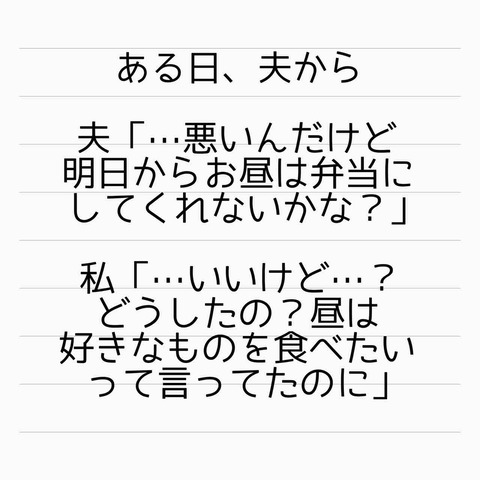 ある日、夫から
夫「…悪いんだけど
明日からお昼は弁当に
してくれないかな？」
私「…いいけど…？
どうしたの？昼は
好きなものを食べたい
って言ってたのに」